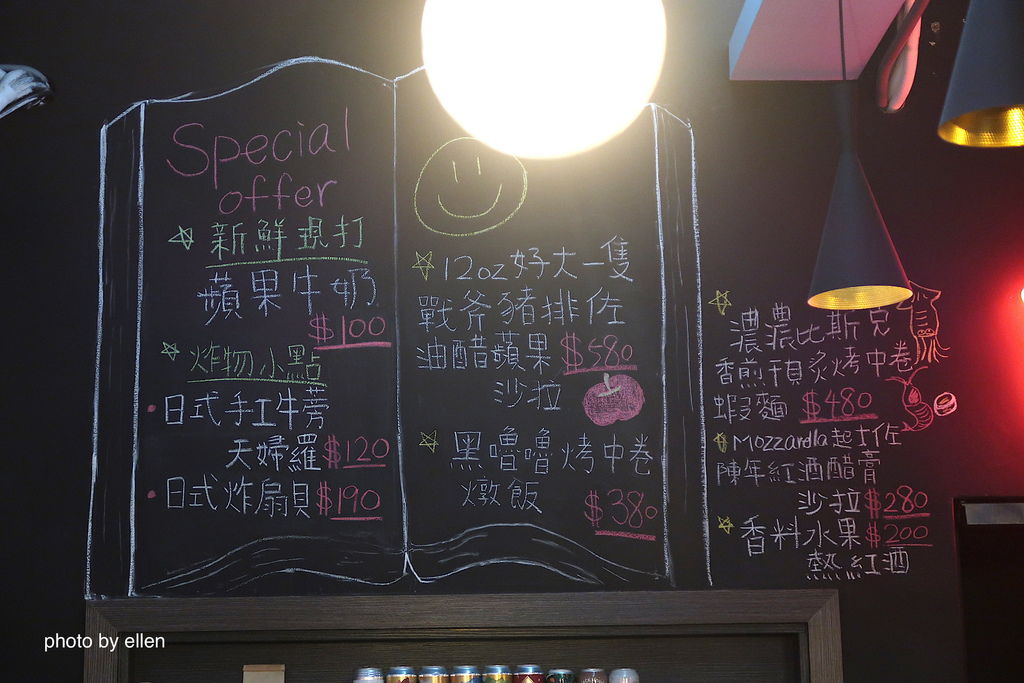 Special
offer
新鮮現打
蘋果牛奶
$100
炸物小點
日式手工牛蒡
天婦羅 $120
日式炸扇貝 $190
12oz 好大一隻
戰斧豬排佐
油醋蘋果 $580
沙拉
黑嚕嚕烤中卷
燉飯
$380
濃濃比斯克
香煎干貝炙烤中卷
蝦麵 $480
Mozzarella起士佐
陳年紅酒醋膏
沙拉 $280
香料水果 $200
熱紅酒
photo by ellen